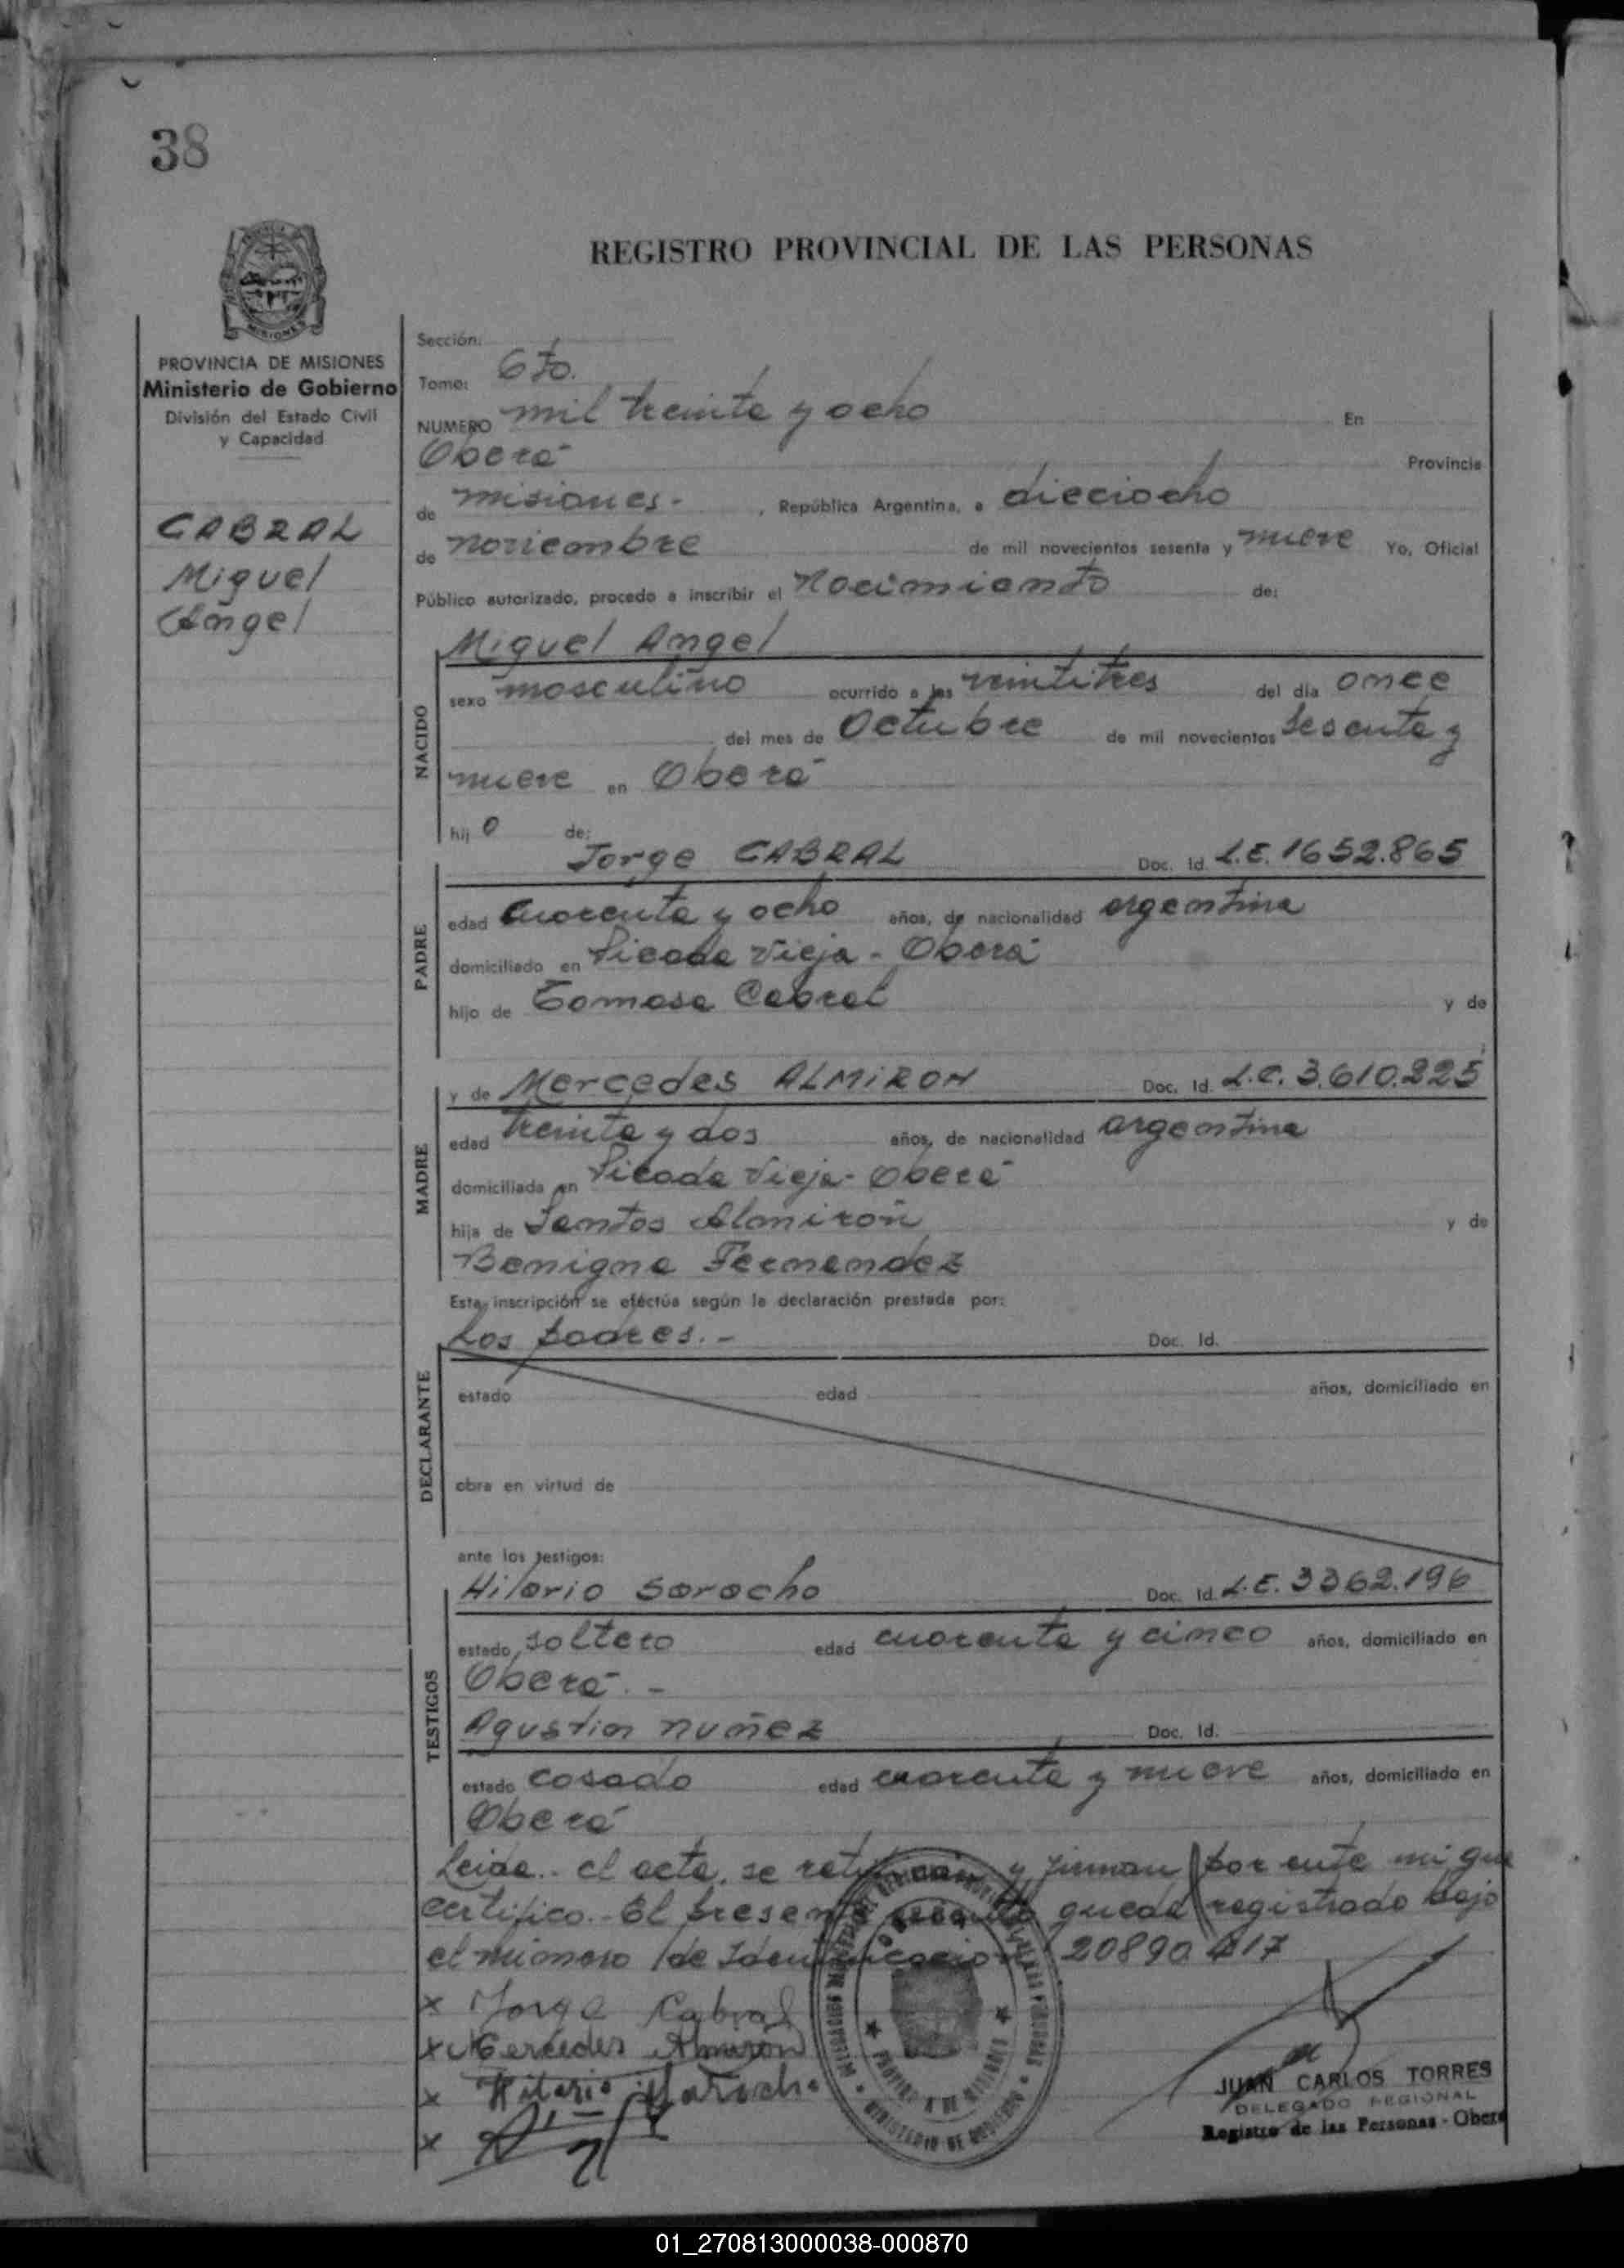 38
REGISTRO PROVINCIAL DE LAS PERSONAS
MISIONES
PROVINCIA DE MISIONES
Ministerio de Gobierno
División del Estado Civil
y Capacidad
CABRAL
Miguel
Angel
Sección:
Tomo: 6to.
NUMERO mil treinta y ocho En
Oberá Provincia
de misiones - , República Argentina, a dieciocho
de noviembre de mil novecientos sesenta y nueve Yo, Oficial
Público autorizado, procedo a inscribir el Nacimiento de:
Miguel Angel
NACIDO
sexo masculino ocurrido a las veintitres del día once
del mes de Octubre de mil novecientos sesenta y
nueve en Oberá
hij o de:
Jorge CABRAL Doc. Id. L.E. 1652.865
PADRE
edad cuarenta y ocho años, de nacionalidad argentina
domiciliado en Picada Vieja - Oberá
hijo de Tomasa Cabral y de
y de Mercedes ALMIRON Doc. Id. L.C. 3.610.225
MADRE
edad treinta y dos años, de nacionalidad argentina
domiciliada en Picada Vieja - Oberá
hija de Santos Almirón y de
Benigna Fernandez
Esta inscripción se efectúa según la declaración prestada por:
Los padres. - Doc. Id.
DECLARANTE
estado edad años, domiciliado en
obra en virtud de
ante los testigos:
Hilario Saracho Doc. Id. L.E. 3362.196
TESTIGOS
estado soltero edad cuarenta y cinco años, domiciliado en
Oberá. -
Agustin nuñez Doc. Id.
estado casado edad cuarenta y nueve años, domiciliado en
Oberá
Leida.- el acta, se ratifican y firman por ente mi que
certifico.- El presente queda registrado bajo
el número de Identificación 20890
x Jorge Cabral
x Mercedes Almirón
x Hilario Saracho
x
MINISTERIO DE GOBIERNO
JUAN CARLOS TORRES
DELEGADO REGIONAL
Registro de las Personas - Oberá
01_270813000038-000870